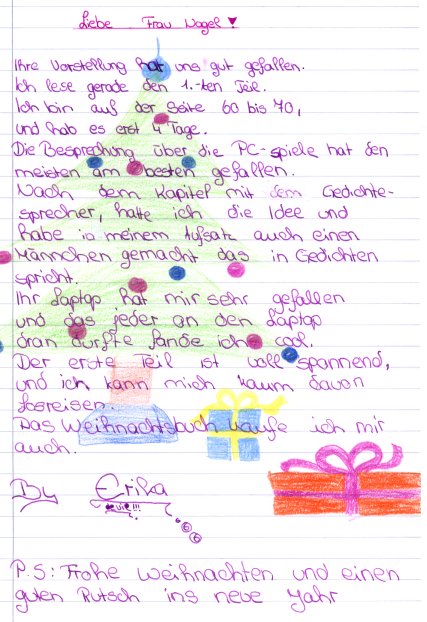 Liebe Frau Nagel ♥
Ihre Vorstellung hat uns gut gefallen.
Ich lese gerade den 1.-ten Teil.
Ich bin auf der Seite 60 bis 70,
und hab es erst 4 Tage.
Die Besprechung über die PC-spiele hat den
meisten am besten gefallen.
Nach dem Kapitel mit dem Gedichte-
sprecher, hatte ich die Idee und
habe in meinem Aufsatz auch einen
Männchen gemacht das in Gedichten
spricht.
Ihr Laptop hat mir sehr gefallen
und das jeder an den Laptop
dran durfte fande ich cool.
Der erste Teil ist voll spannend,
und ich kann mich kaum davon
losreisen.
Das Weihnachtsbuch kaufe ich mir
auch.
By Erika
P.S: Frohe Weihnachten und einen
guten Rutsch ins neue Jahr